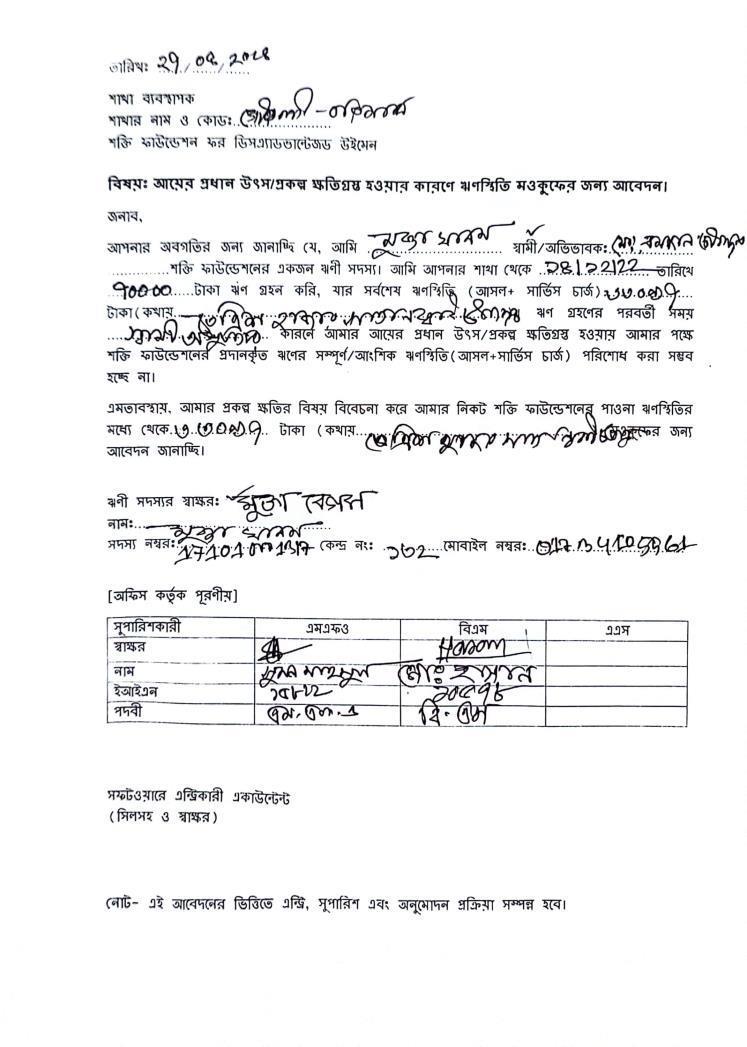 তারিখঃ 29/08/2024
শাখা ব্যবস্থাপক
শাখার নাম ও কোডঃ
শক্তি ফাউন্ডেশন ফর ডিসএ্যাডভান্টেজড উইমেন
বিষয়ঃ আয়ের প্রধান উৎস/প্রকল্প ক্ষতিগ্রস্থ হওয়ার কারণে ঋণস্থিতি মওকুফের জন্য আবেদন।
জনাব,
আপনার অবগতির জন্য জানাচ্ছি যে, আমি মুক্তা স্বামী/অভিভাবকঃ মোঃ
শক্তি ফাউন্ডেশনের একজন ঋণী সদস্য। আমি আপনার শাখা থেকে তারিখে
90000 টাকা ঋণ গ্রহন করি, যার সর্বশেষ ঋণস্থিতি (আসল+ সার্ভিস চার্জ)
টাকা (কথায় তেত্রিশ হাজার ঋণ গ্রহণের পরবর্তী সময়
স্বামী কারনে আমার আয়ের প্রধান উৎস/প্রকল্প ক্ষতিগ্রস্থ হওয়ায় আমার পক্ষে
শক্তি ফাউন্ডেশনের প্রদানকৃত ঋণের সম্পূর্ণ/আংশিক ঋণস্থিতি (আসল+সার্ভিস চার্জ) পরিশোধ করা সম্ভব
হচ্ছে না।
এমতাবস্থায়, আমার প্রকল্প ক্ষতির বিষয় বিবেচনা করে আমার নিকট শক্তি ফাউন্ডেশনের পাওনা ঋণস্থিতির
মধ্যে থেকে টাকা (কথায় তেত্রিশ হাজার মওকুফের জন্য
আবেদন জানাচ্ছি।
ঋণী সদস্যর স্বাক্ষরঃ মুক্তা বেগম
নামঃ মুক্তা
সদস্য নম্বরঃ কেন্দ্র নংঃ ১৩২ মোবাইল নম্বরঃ
[অফিস কর্তৃক পূরণীয়]
সুপারিশকারী এমএফও বিএম এএস
স্বাক্ষর Hasan
নাম মোঃ হাসান
ইআইএন
পদবী বি.এম
সফটওয়ারে এন্ট্রিকারী একাউন্টেন্ট
(সিলসহ ও স্বাক্ষর)
নোট- এই আবেদনের ভিত্তিতে এন্ট্রি, সুপারিশ এবং অনুমোদন প্রক্রিয়া সম্পন্ন হবে।